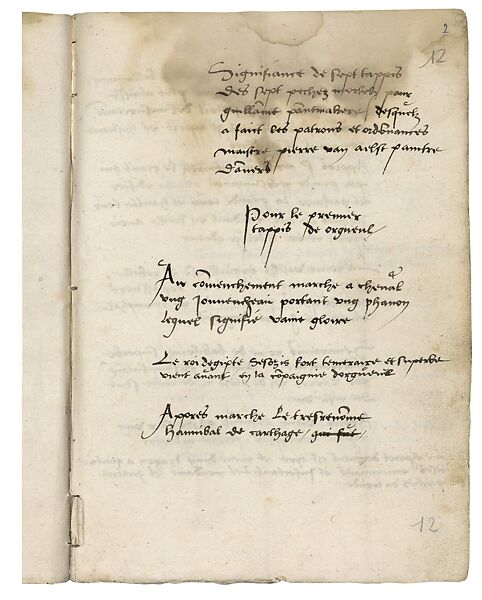 2
12
Signifiance de sept tappis
des sept pechez mortelz pour
guillame pantmakere desquelz
a faict les patrons et ordonnances
maistre pierre van aelst paintre
danvers
Pour le premier
tappis de orgueul
Au cõmenchement marche a cheval
ung Jonnencheau portant ung phanon
lequel signifie vaine gloire
Le roi degipte Sesozis fort temeraire et superbe
vient avant en la cõpaignie dorgueull
Appres marche le tresrenõme
hannibal de carthage qui fut
12